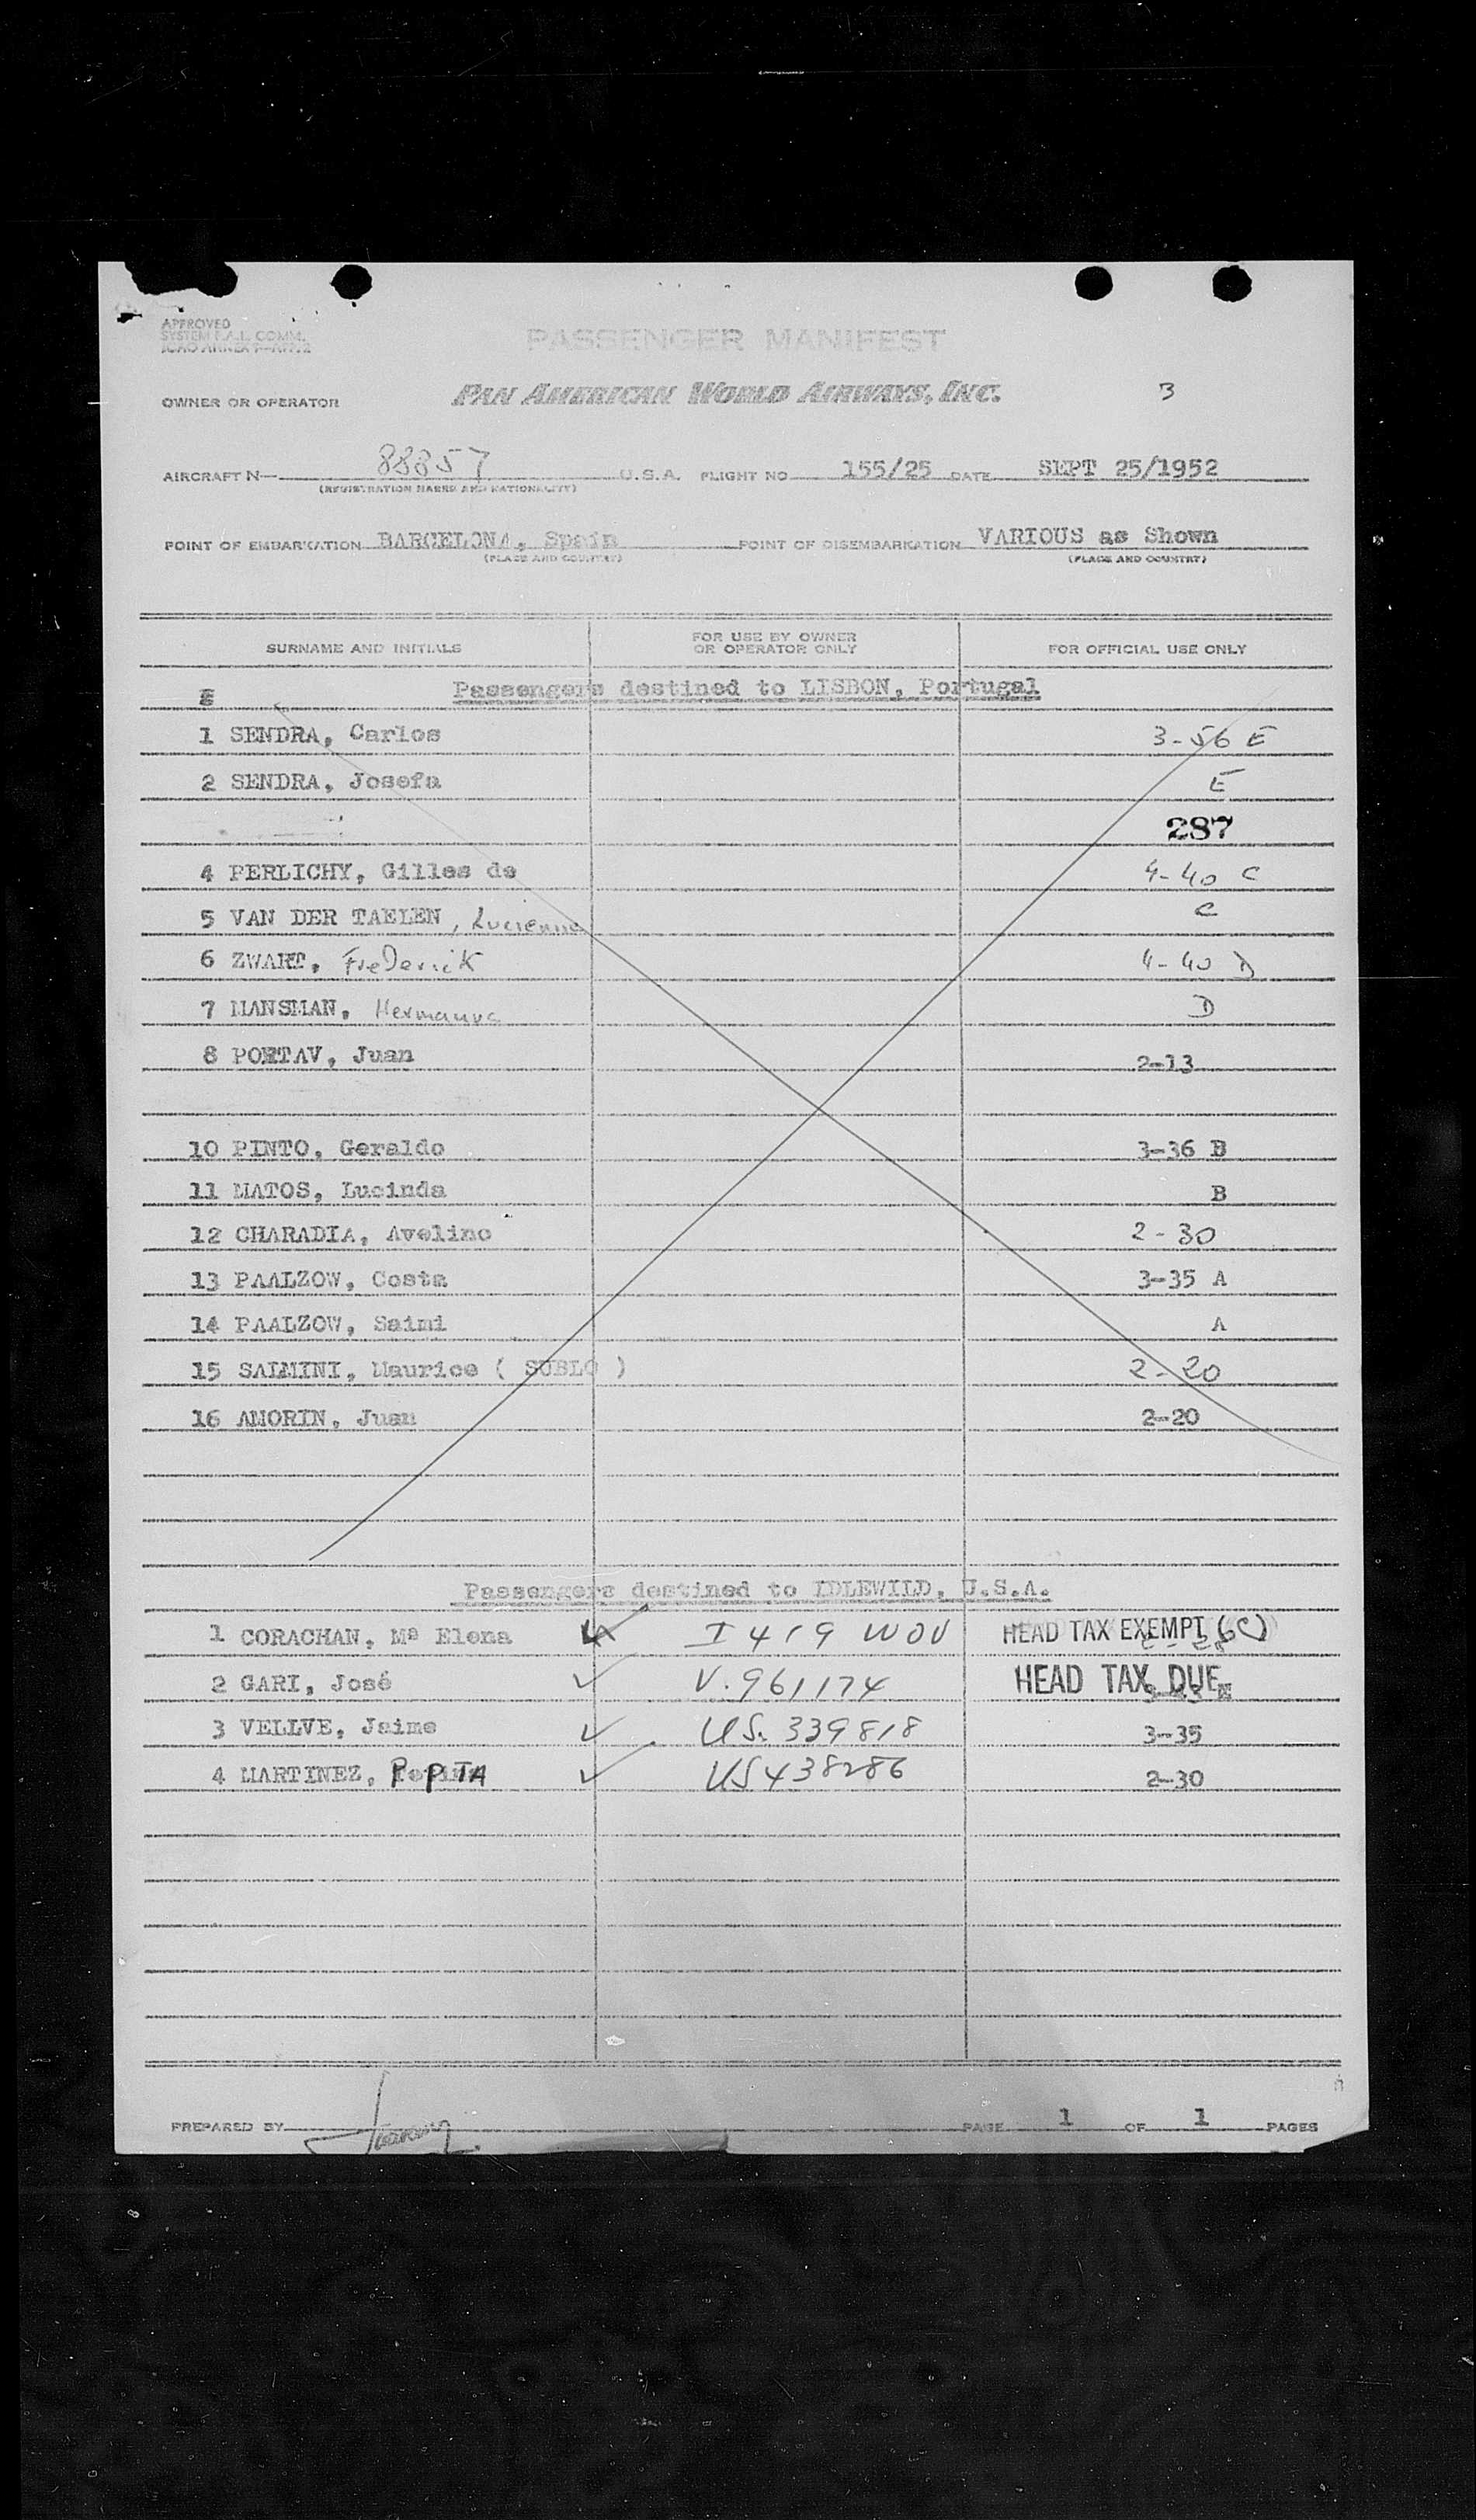 APPROVED
SYSTEM F.A.L. COMM.
ICAO ANNEX 9-APP. 2
PASSENGER MANIFEST
OWNER OR OPERATOR PAN AMERICAN WORLD AIRWAYS, INC. 3
AIRCRAFT N— 88857 U.S.A. FLIGHT NO 155/25 DATE SEPT 25/1952
(REGISTRATION MARKS AND NATIONALITY)
POINT OF EMBARKATION BARCELONA, Spain POINT OF DISEMBARKATION VARIOUS as Shown
(PLACE AND COUNTRY) (PLACE AND COUNTRY)
SURNAME AND INITIALS FOR USE BY OWNER OR OPERATOR ONLY FOR OFFICIAL USE ONLY
Passengers destined to LISBON, Portugal
1 SENDRA, Carlos 3-56 E
2 SENDRA, Josefa E
287
4 PERLICHY, Gilles de 4-40 C
5 VAN DER TAELEN, Lucienne C
6 ZWART, Frederik 4-40 D
7 MANSMAN, Hermanna D
8 PORTAV, Juan 2-13
10 PINTO, Geraldo 3-36 B
11 MATOS, Lucinda B
12 CHARADIA, Avelino 2-30
13 PAALZOW, Costa 3-35 A
14 PAALZOW, Saimi A
15 SALMINI, Maurice ( SUBLO ) 2-20
16 AMORIN, Juan 2-20
Passengers destined to IDLEWILD, U.S.A.
1 CORACHAN, Mª Elena I 419 HEAD TAX EXEMPT (6C)
2 GARI, José V. 961174 HEAD TAX DUE
3 VELLVE, Jaime US. 339818 3-35
4 MARTINEZ, PEPITA US 438286 2-30
PREPARED BY PAGE 1 OF 1 PAGES